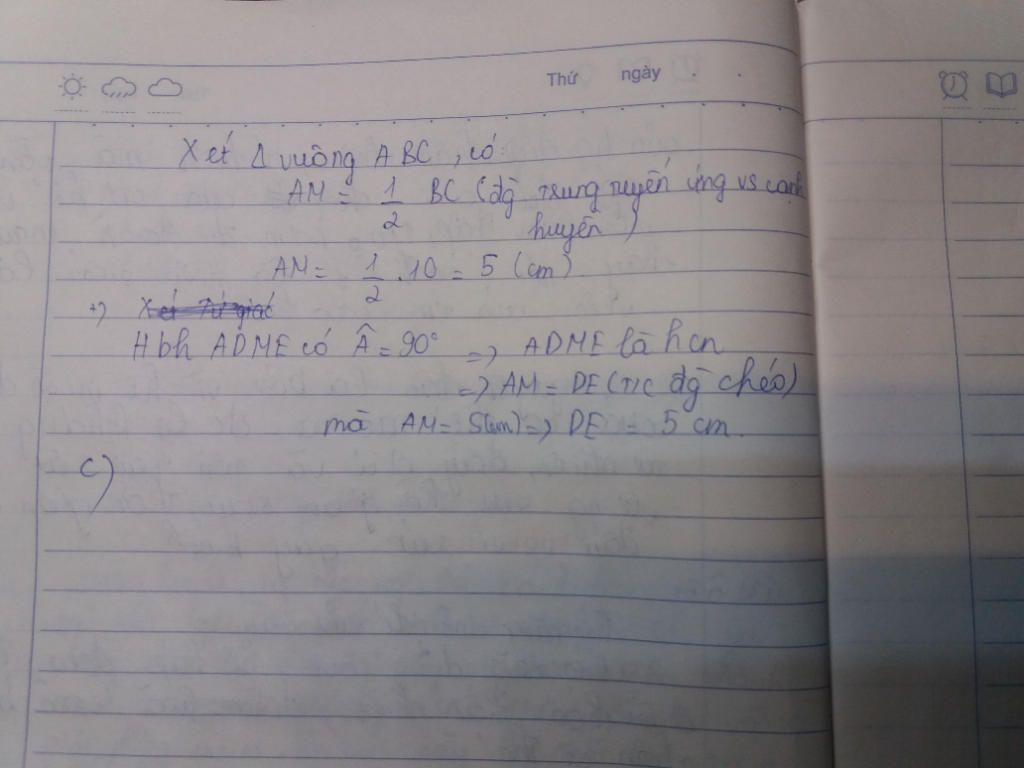 Thứ ngày . .
Xét Δ vuông ABC, có:
AM = 1/2 BC (đg trung tuyến ứng vs cạnh
huyền)
AM = 1/2 . 10 = 5 (cm)
+) Xét Tứ giác
Hbh ADME có Â = 90° => ADME là hcn
=> AM = DE (T/C đg chéo)
mà AM = 5(cm) => DE = 5 cm.
c)